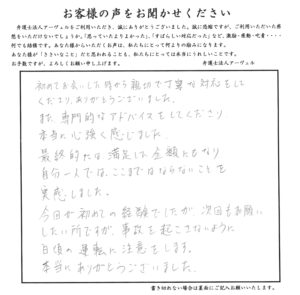 お客様の声をお聞かせください
弁護士法人アーヴェルをご利用いただき、誠にありがとうございました。誠に恐縮ですが、ご利用いただいた感
想をいただけないでしょうか。「思っていたよりよかった」、「すばらしい対応だった」など、激励・感動・改善・・・・
何でも結構です。あなた様からいただくお声は、私たちにとって何よりの励みになります。
あなた様が「ささいなこと」だと思われることも、私たちにとっては本当にうれしいことです。
お手数ですが、よろしくお願い申し上げます。
弁護士法人アーヴェル
初めてお会いした時から親切で丁寧な対応をして
くださり、ありがとうございました。
また、専門的なアドバイスをしてくださり
本当に心強く感じました。
最終的には満足した金額ともなり
自分一人では、ここまではならないことを
実感しました。
今回が初めての経験でしたが、次回もお願い
したい所ですが、事故を起こさないように
日頃の運転に注意をします。
本当にありがとうございました。
書き切れない場合は裏面にご記入お願いいたします。